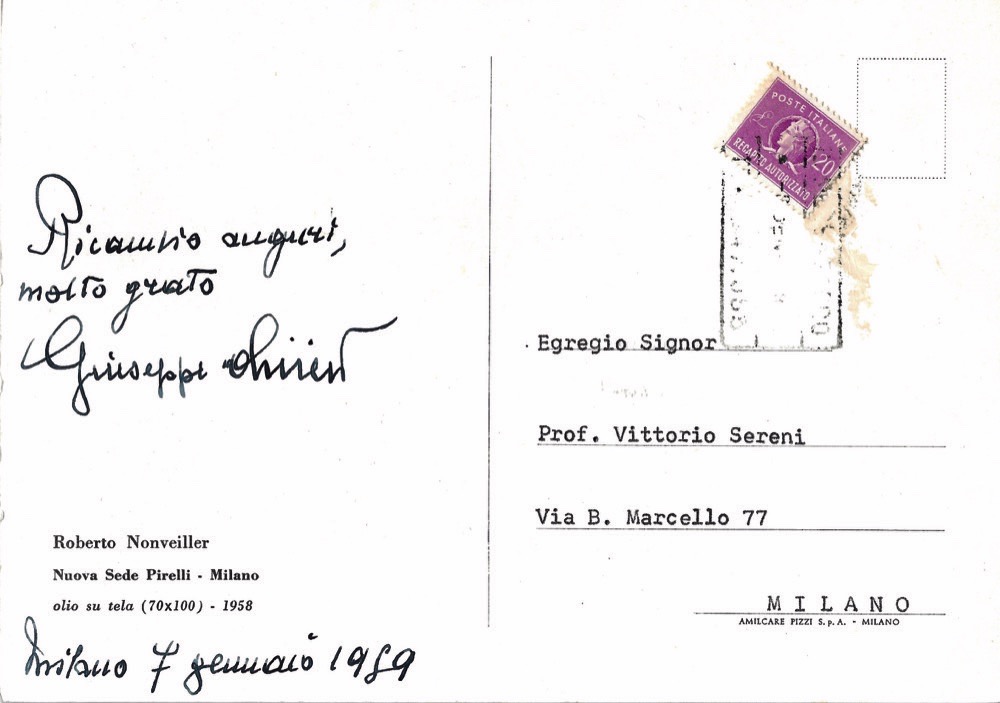 Ricambio auguri,
molto grato
Giuseppe
Roberto Nonveiller
Nuova Sede Pirelli - Milano
olio su tela (70x100) - 1958
Milano 7 gennaio 1959
POSTE ITALIANE
£ 20
RECAPITO AUTORIZZATO
Egregio Signor
Prof. Vittorio Sereni
Via B. Marcello 77
MILANO
AMILCARE PIZZI S.p.A. - MILANO